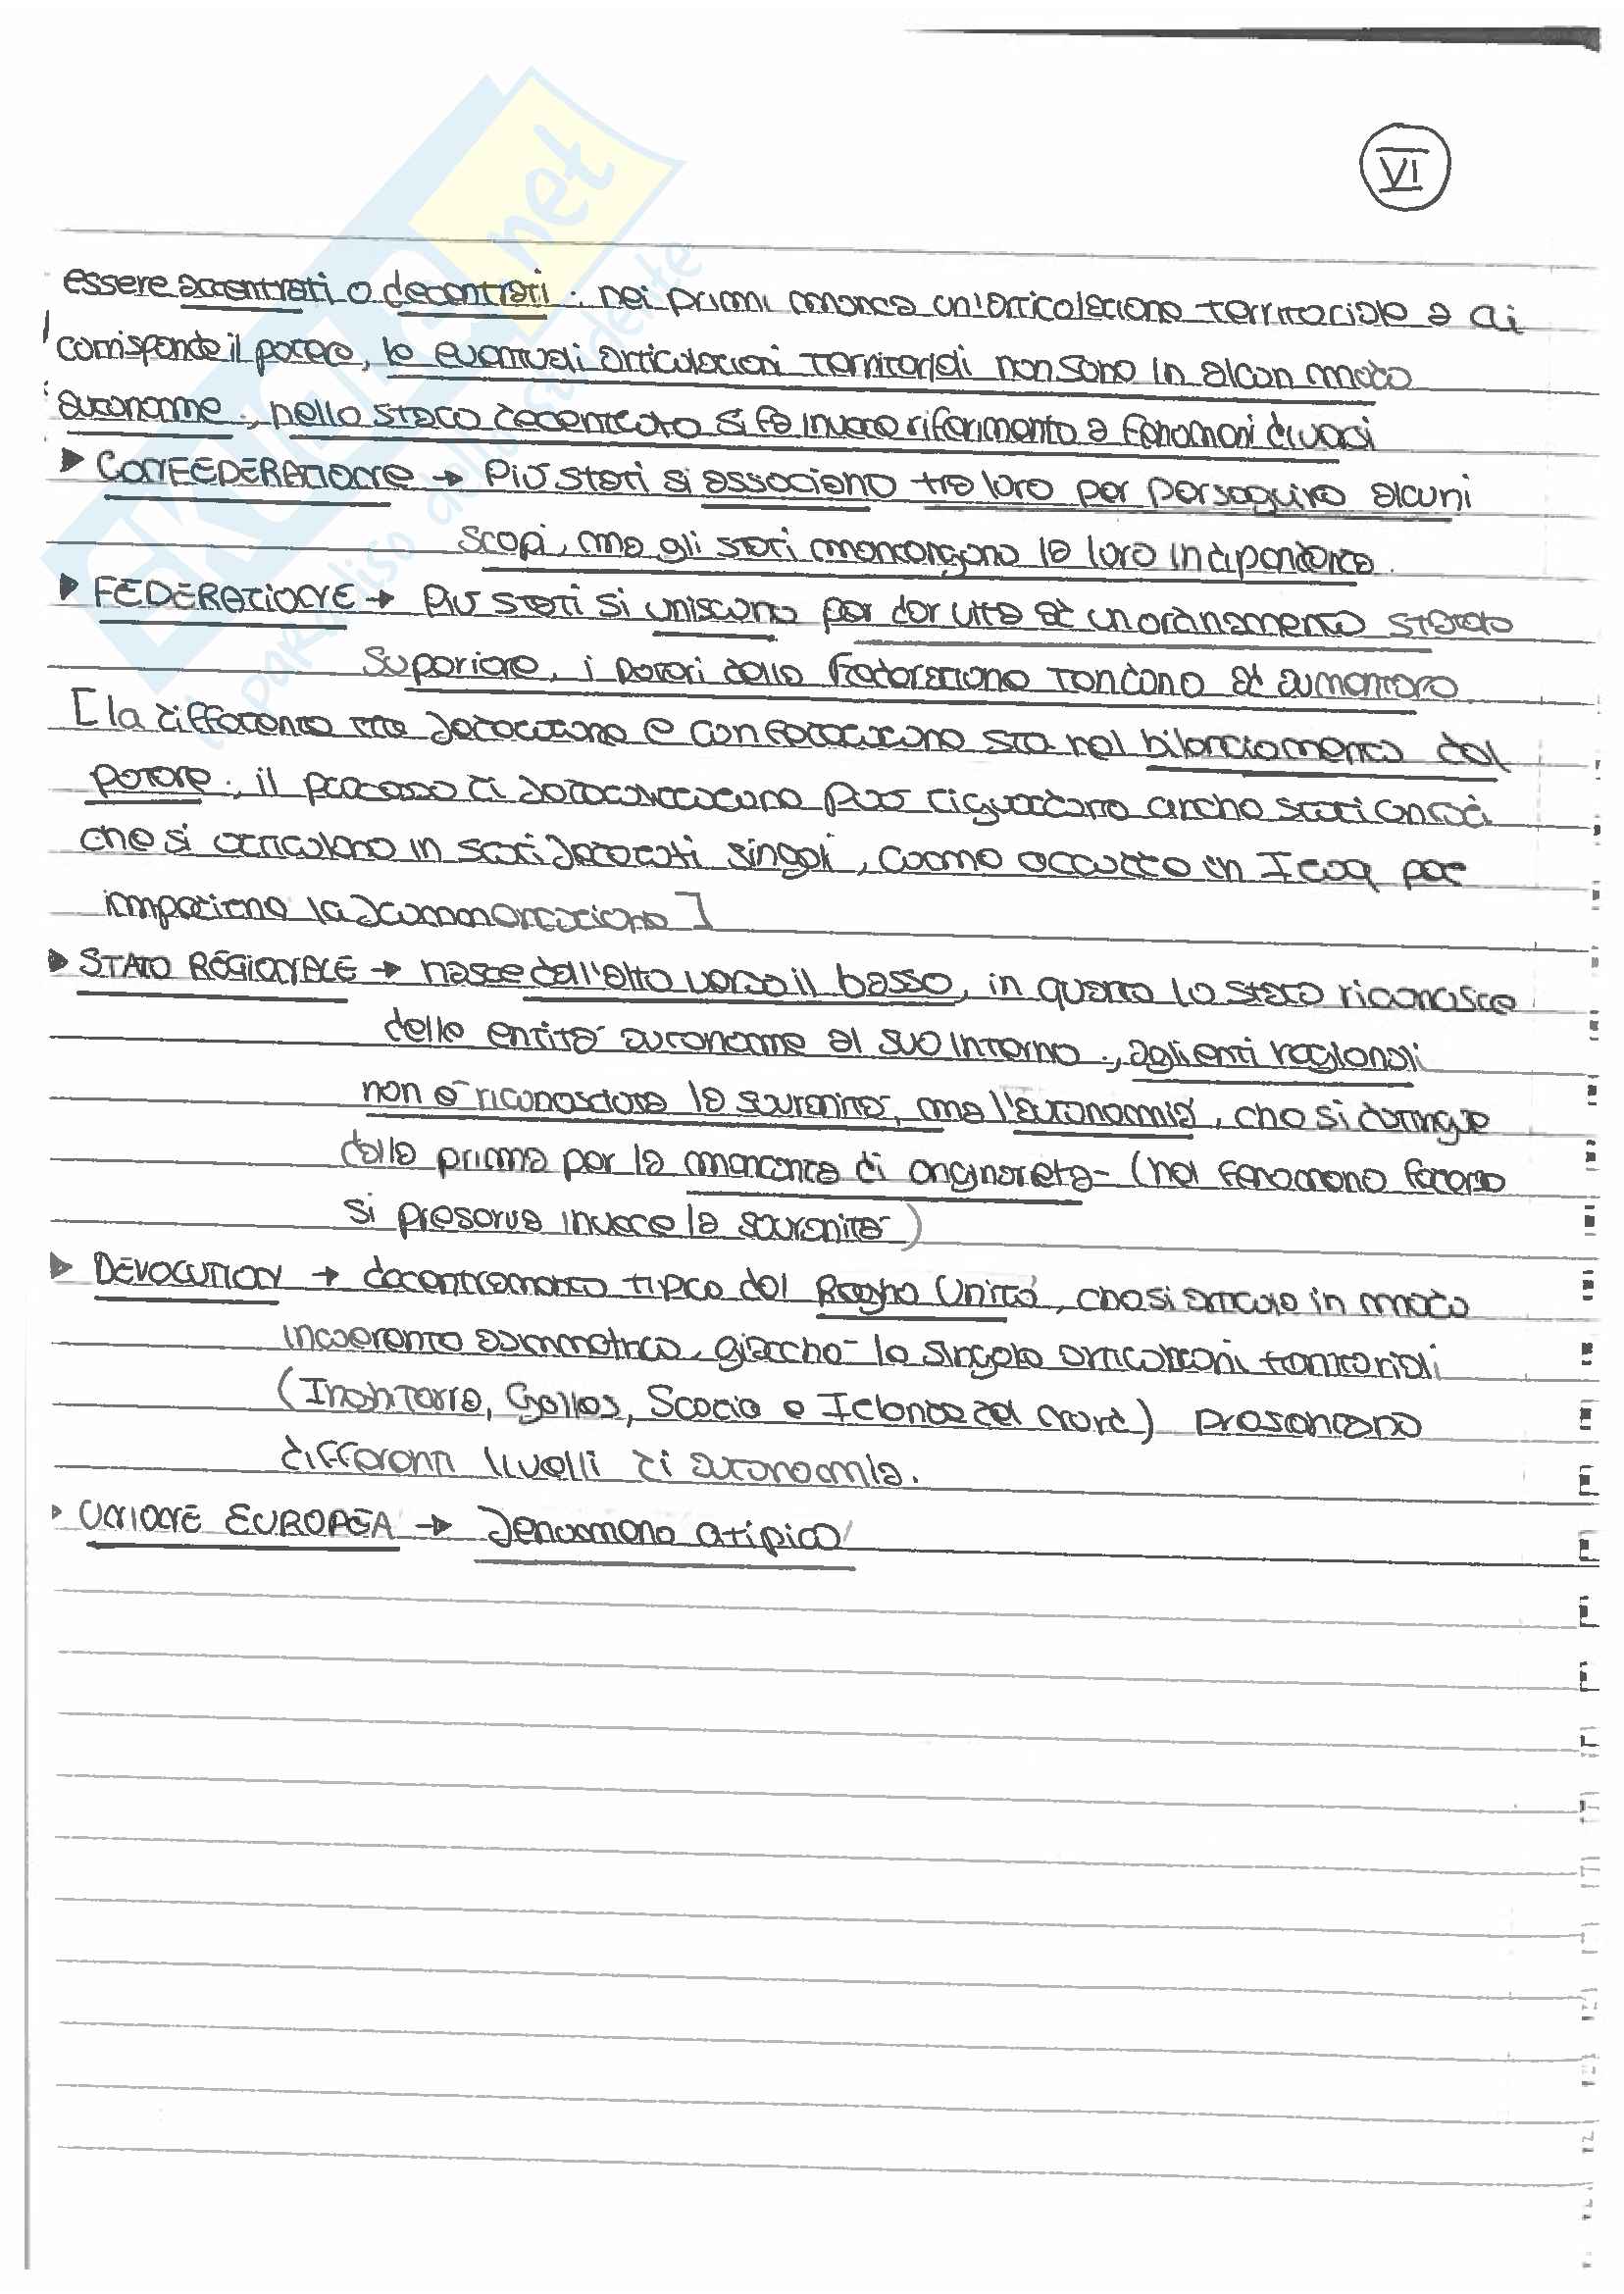 VI
essere accentrati o decentrati: nei primi manca un'articolazione territoriale a cui
corrisponde il potere, le eventuali articolazioni territoriali non sono in alcun modo
autonome; nello stato decentrato si fa invece riferimento a fenomeni diversi
▶ CONFEDERAZIONE → Più stati si associano tra loro per perseguire alcuni
scopi, ma gli stati mantengono la loro indipendenza.
▶ FEDERAZIONE → Più stati si uniscono per dar vita ad un ordinamento statale
superiore, i poteri della Federazione tendono ad aumentare
[la differenza tra federazione e confederazione sta nel bilanciamento del
potere; il processo di può riguardare anche stati unitari
che si articolano in stati federati singoli, come accaduto in Iraq per
impedirne la frammentazione]
▶ STATO REGIONALE → nasce dall'alto verso il basso, in quanto lo stato riconosce
delle entità autonome al suo interno; agli enti regionali
non è riconosciuta la sovranità, ma l'autonomia, che si distingue
dalla prima per la mancanza di originarietà (nel fenomeno federale
si preserva invece la sovranità)
▶ DEVOLUTION → decentramento tipico del Regno Unito, che si articola in modo
incoerente asimmetrico, giacché le singole articolazioni territoriali
(Inghilterra, Galles, Scozia e Irlanda del Nord) presentano
differenti livelli di autonomia.
▶ UNIONE EUROPEA → fenomeno atipico
SKUOLA.net
il paradiso dello studente